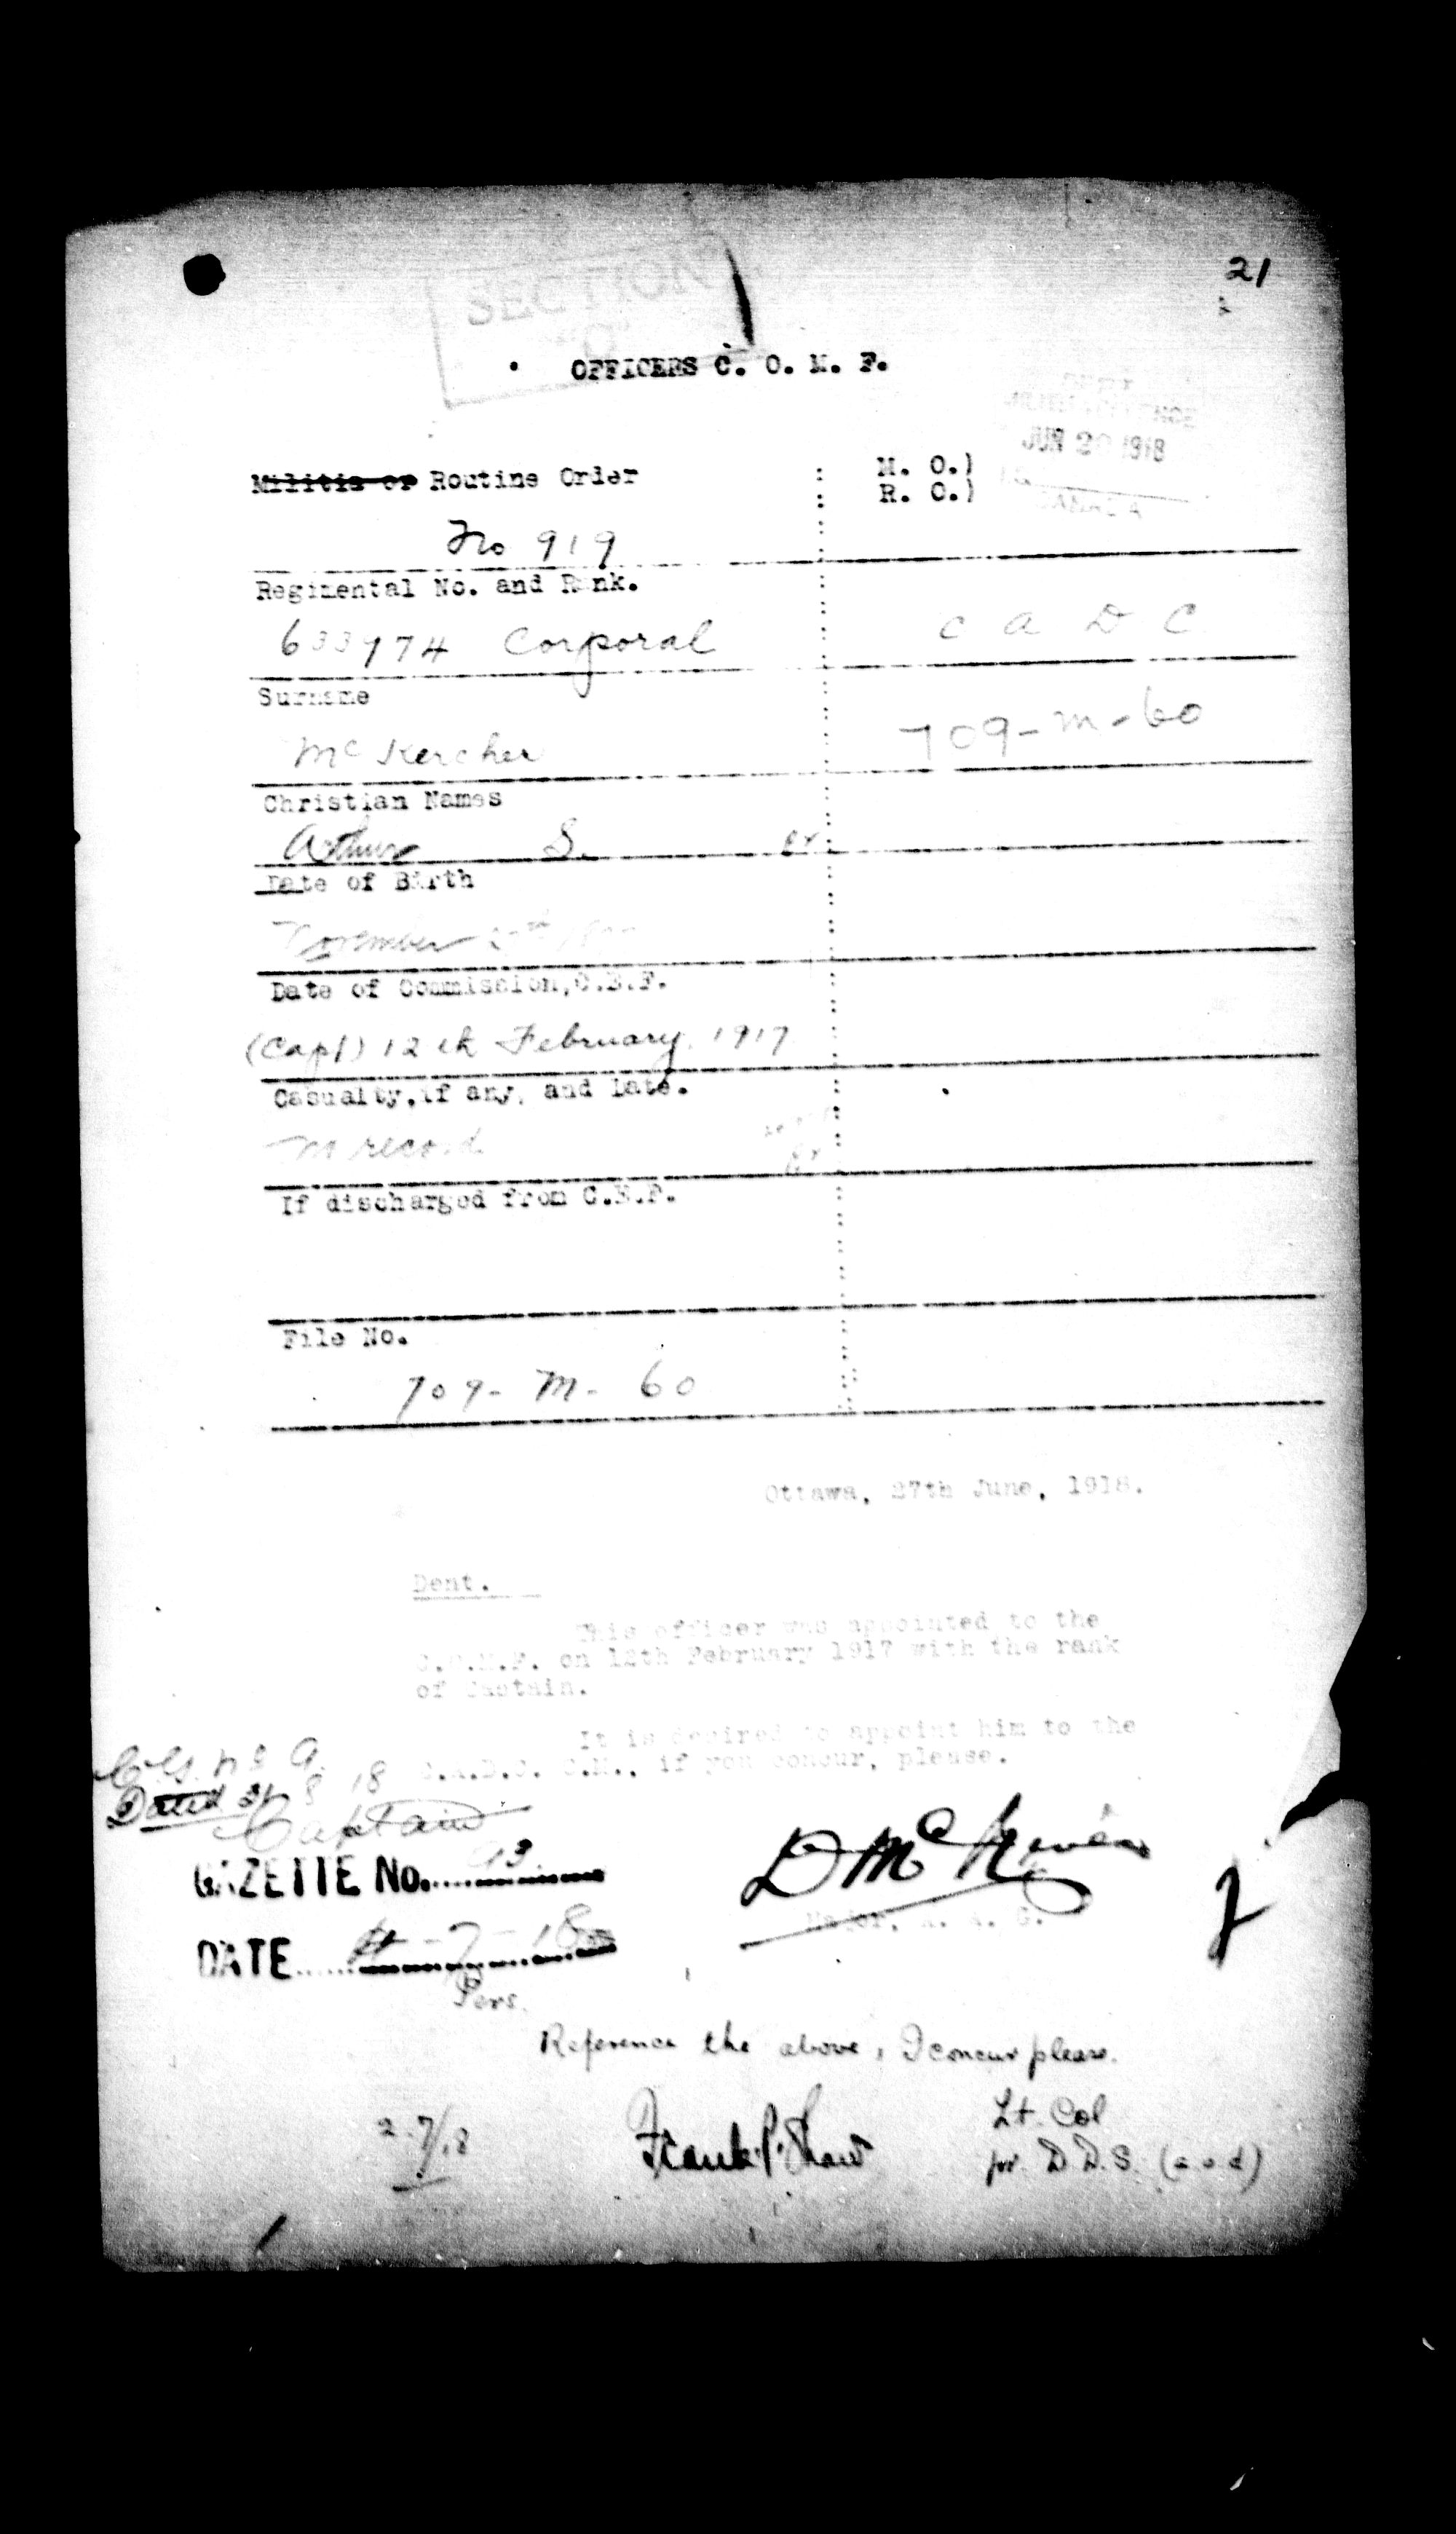 21
SECTION
OFFICERS C. O. M. F.
JUN 20 1918
Militia or Routine Order
M. O.)
R. O.)
No 919
Regimental No. and Rank.
633974 Corporal
C A D C
Surname
McKercher
709-M-60
Christian Names
Arthur S.
Date of Birth
November
Date of Commission, C.E.F.
(Capt) 12th February, 1917
Casualty, if any, and Date.
No record
If discharged from C.E.F.
File No.
709-M-60
Ottawa, 27th June, 1918.
Dent.
This officer was appointed to the
C.O.M.F. on 12th February 1917 with the rank
of Captain.
It is desired to appoint him to the
C.A.D.C. C.M., if you concur, please.
Dated 31 8 18
Captain
GAZETTE No. 93
DATE -7-18
Major, A. A. G.
Pers.
Reference the above, I concur please.
2.7/18
Frank P. Shaw
Lt. Col
for D D.S.